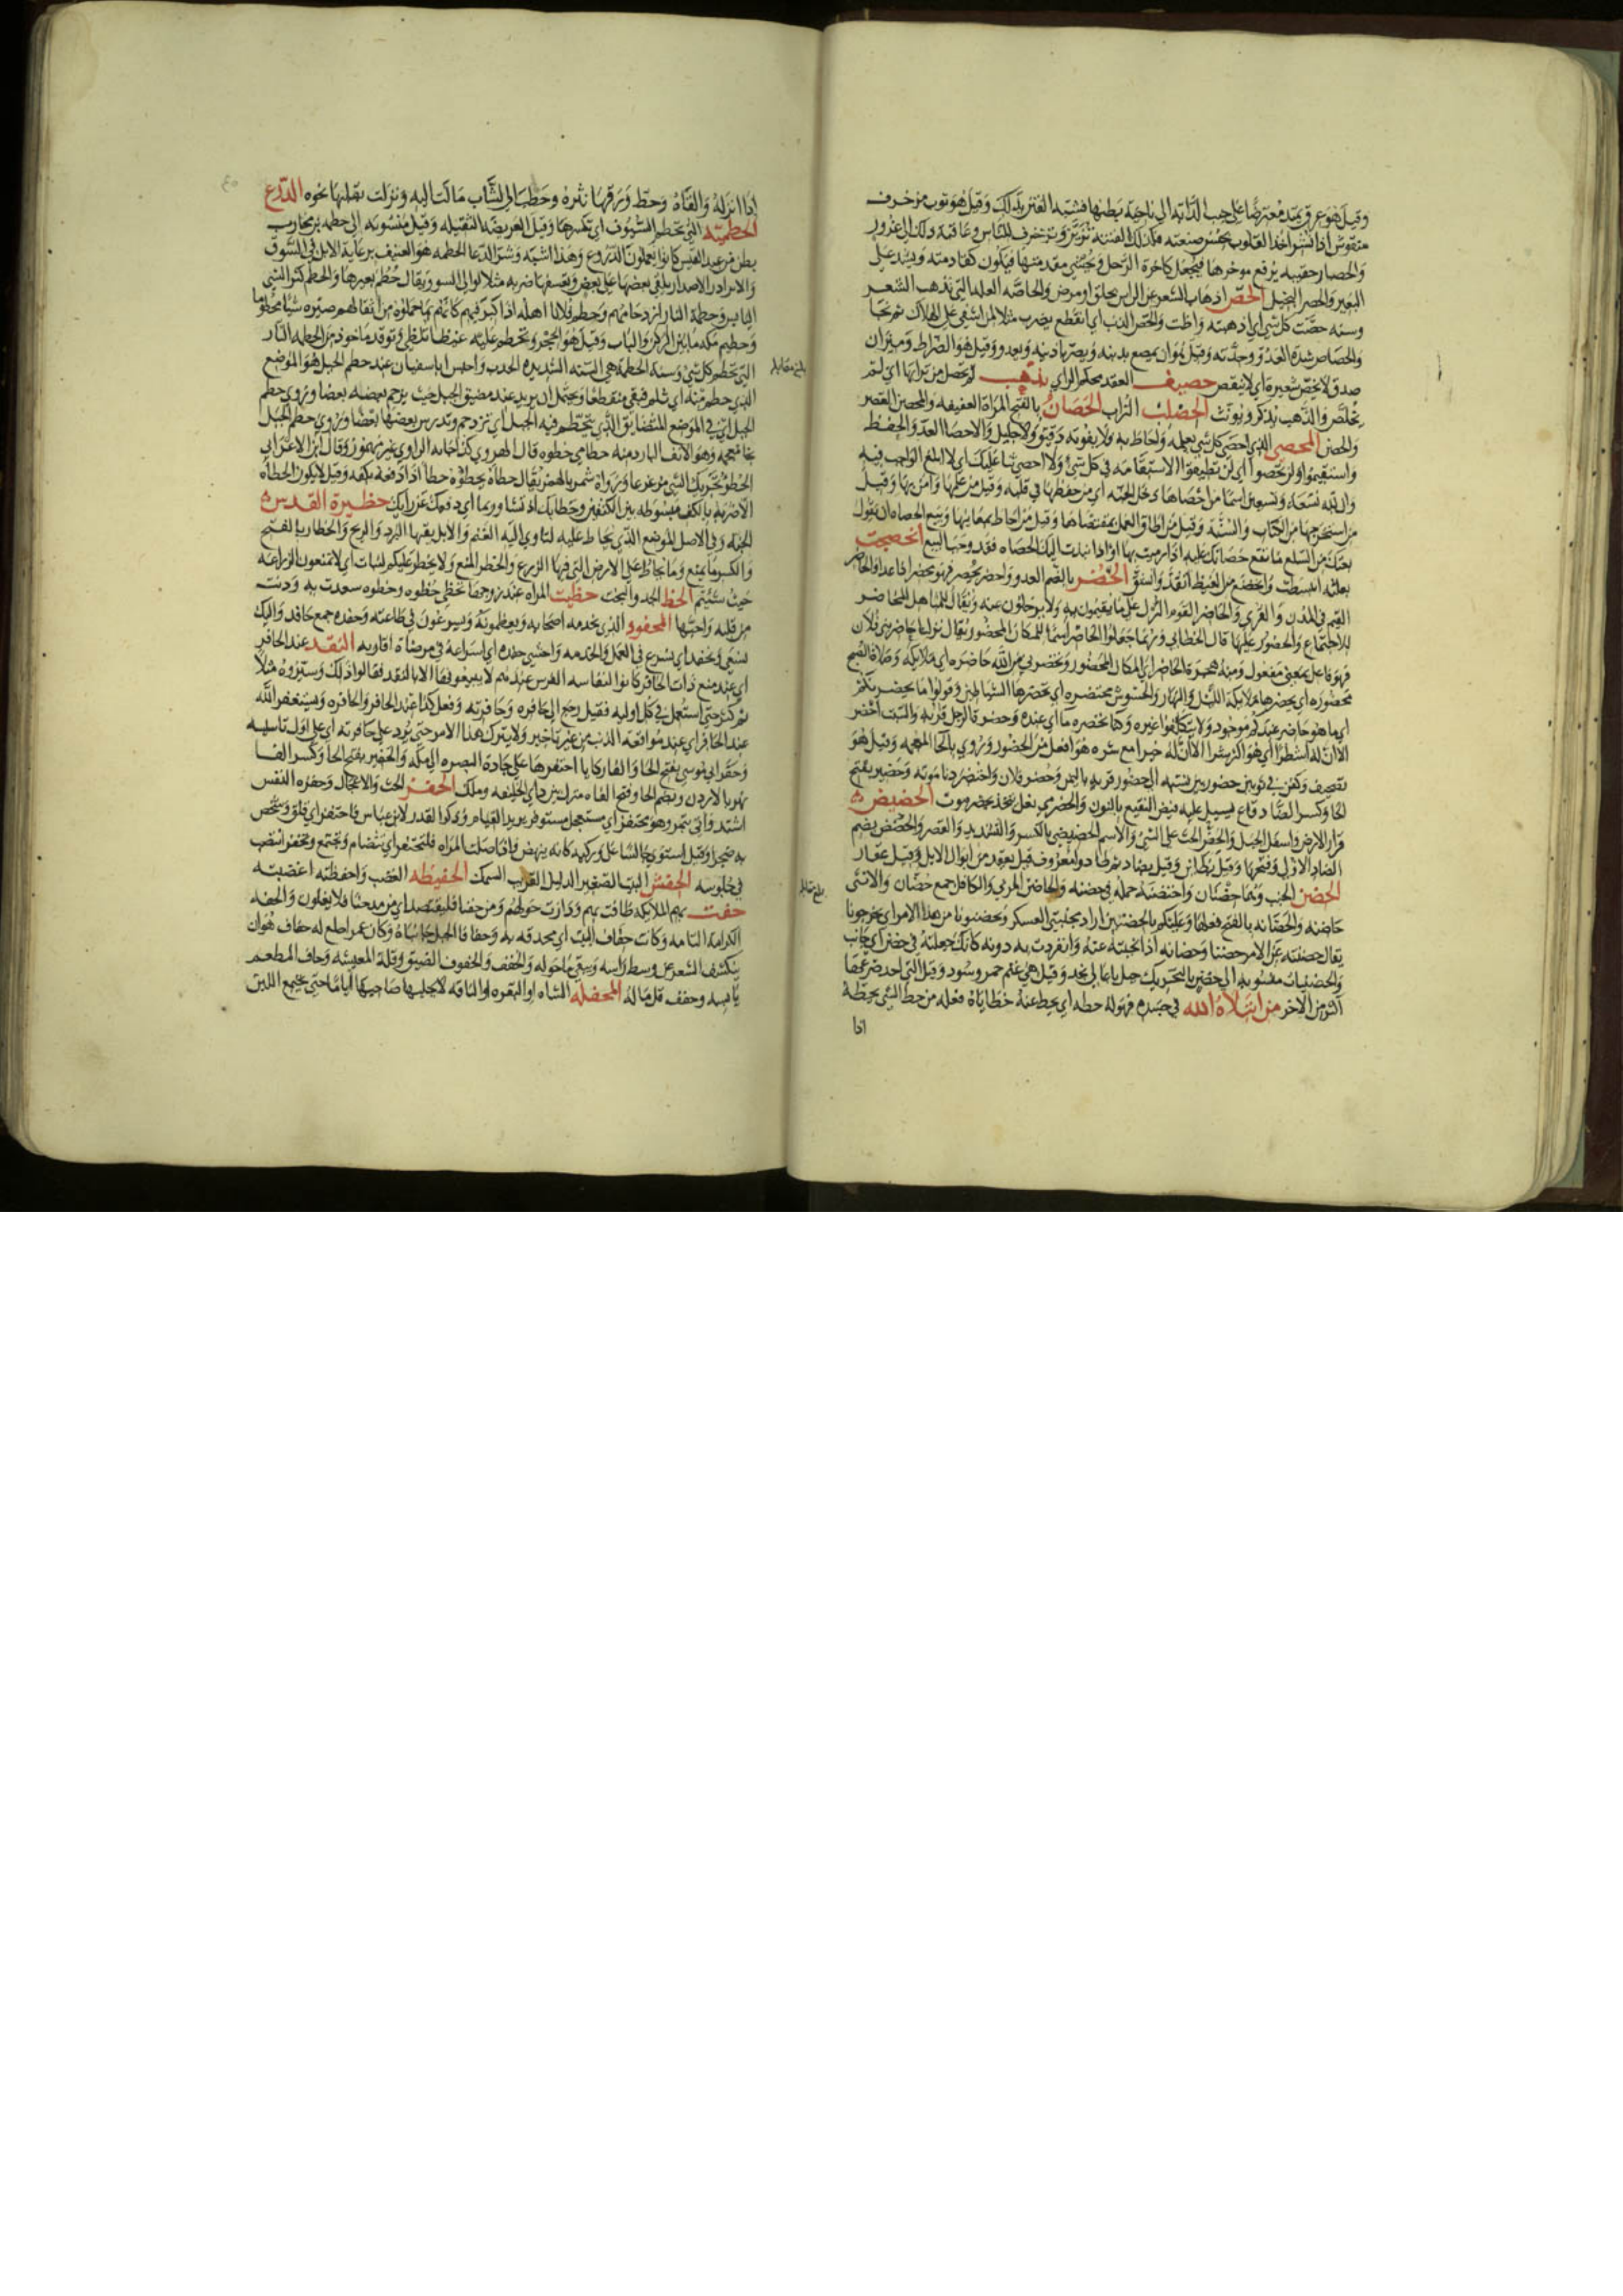 وقيل هو عرق يمتد معترضا على جنب الدابة الى ناحية بطنها فشبه الفتن بذلك وقيل هو ثوب مزخرف
منقوش اذا نشر اخذ القلوب بحسن صنعته فكذلك الفتنة تزين وتزخرف للناس وعاقبة ذلك الى غرور
والحصار حقيبة يرفع موخرها فيجعل كاخرة الرحل ويحشى مقدمها فيكون كقادمته ويشد على
البعير والحصر البخيل الحص اذهاب الشعر عن الراس بحلق او مرض والحاصة العلة التي تذهب الشعر
وسنة حصت كل شي اي اذهبته وانحص الذنب اي انقطع يضرب مثلا لمن اشفى على الهلاك ثم نجا
والحصاص شدة العدو وحدته وقيل هو ان يمصع بذنبه ويصر باذنيه ويعدو وقيل هو الضراط وميزان
صدق لا يخص شعيرة اي لا ينقص حصيف العقد محكم الراي بذهب لم تحصل من ترابها اي لم
تخلص والذهب يذكر ويونث الحصلب التراب الحصان بالفتح المراة العفيفة والمحصن القصر
والحصن المحصي الذي احصى كل شي بعلمه واحاط به فلا يفوته دقيق ولا جليل والاحصا العد والحفظ
واستقيموا ولن تحصوا اي لن تطيقوا الاستقامة في كل شي ولا احصي ثنا عليك اي لا ابلغ الواجب فيه
وان لله تسعة وتسعين اسما من احصاها دخل الجنة اي من حفظها في قلبه وقيل من علمها وامن بها وقيل
من استخرجها من الكتاب والسنة وقيل من اطاق العمل بمقتضاها وقيل من احاط بمعانيها وبيع الحصاة ان يقول
بعتك من السلع ما تقع حصاتك عليه اذا رميت بها او اذا نبذت اليك الحصاة فقد وجب البيع انحضجت
بغلته انبسطت وانحضج من الغيظ انقد وانشق الحضر بالضم العدو واحضر يحضر فهو محضر اذا عدا والحاضر
القيم في المدن والقرى والحاضر القوم النزل على ما يقيمون به ولا يرحلون عنه ويقال للمناهل المحاضر
للاجتماع والحضور عليها قال الخطابي وربما جعلوا الحاضر اسما للمكان المحضور يقال نزلنا حاضر بني فلان
فهو فاعل بمعنى مفعول ومنه هجرة الحاضر اي المكان المحضور وتحضرني من الله حاضرة اي ملائكة وصلاة الصبح
محضورة اي يحضرها ملائكة الليل والنهار والحشوش محتضرة اي تحضرها الشياطين وقولوا ما يحضركم
اي ما هو حاضر عندكم موجود ولا تتكلفوا غيره وكنا بحضرة ماء اي عنده وحضرة الرجل قربه والسبت احضر
الا ان له اشطرا اي هو اكثر شرا الا ان له خيرا مع شره هو افعل من الحضور وروي بالخا المعجمة وقيل هو
تصحيف وكفن في ثوبين حضوريين نسبة الى حضور قرية باليمن وحضر فلان واحتضر دنا موته وحضير بفتح
الحا وكسر الضاد قاع يسيل عليه فيض النقيع بالنون والحضرمي نعل تتخذ بحضرموت الحضيض
قرار الارض واسفل الجبل والحض الحث على الشي والاسم الحضيضى بالكسر والتشديد والقصر والحضض بضم
الضاد الاولى وفتحها وقيل بظائين وقيل بضاد ثم ظا دوا معروف قيل يعقد من ابوال الابل وقيل عقار
الحضن الجنب وهما حضنان واحتضنه حمله في حضنه والحاضن المربي والكافل جمع حضان والانثى
حاضنة والحضانة بالفتح فعلها وعليكم بالحضنين اراد مجنبتي العسكر وتحضنونا من هذا الامر اي تخرجونا
يقال حضنته عن الامر حضنا وحضانة اذا نحيته عنه وانفردت به دونه كانك جعلته في حضن اي جانب
والحضنيات منسوبة الى حضن بالتحريك جبل باعالي نجد وقيل هي غنم حمر وسود وقيل التي احد ضرعيها
اكبر من الاخر من ابتلاه الله في جسده فهو له حطة اي يحط عنه خطاياه فعلة من حط الشي يحطه
اذا
اذا انزله والقاه وحط ورقها نثره وحطت الى الشاب مالت اليه ونزلت بقلبها نحوه الدرع
الحطمية التي تحطم السيوف اي تكسرها وقيل العريضة الثقيلة وقيل منسوبة الى حطمة بن محارب
بطن من عبد القيس كانوا يعملون الدروع وهذا اشبه وشر الرعا الحطمة هو العنيف برعاية الابل في السوق
والايراد والاصدار يلقي بعضها على بعض ويعسفها ضربه مثلا لوالي السو ويقال حطم بغير ها والحطم كسر الشي
اليابس وحطمة الناس ازدحامهم وحطم فلانا اهله اذا كبر فيهم كانهم بما حملوه من اثقالهم صيروه شيخا محطوما
وحطيم مكة ما بين الركن والباب وقيل هو الحجر وتحطم عليه غيظا تلظى وتوقد ماخوذ من الحطمة النار
التي تحطم كل شي وسنة الحطمة هي السنة الشديدة الجدب واحبس ابا سفيان عند حطم الجبل هو الموضع
الذي حطم منه اي ثلم فبقي منقطعا ويحتمل ان يريد عند مضيق الجبل حيث يزحم بعضه بعضا وروي حطم
الجبل اي في الموضع المتضايق الذي تتحطم فيه الخيل اي تزدحم وتدوس بعضها بعضا وروي خطم الجبل
بخا معجمة وهو الانف البارد منه حطاني حطوة قال الهروي كذا جا به الراوي غير مهموز وقال ابن الاعرابي
الحطو تحريك الشي مزعزعا ورواه شمر بالهمز يقال حطاه يحطؤه حطأ اذا دفعه بكفه وقيل لا يكون الحطاة
الا ضربة بالكف مبسوطة بين الكتفين وحطا بك اذ تشاورتما اي دفعك عن رايك حظيرة القدس
الجنة وفي الاصل الموضع الذي يحاط عليه لتاوي اليه الغنم والابل يقيها البرد والريح والحظار بالفتح
والكسر ما يمنع وما يحاط على الارض التي فيها الزرع والحظر المنع ولا يحظر عليكم النبات اي لا تمنعون الزراعة
حيث شئتم الحظ الجد والبخت حظيت المراة عند زوجها تحظى حظوة وحظوة سعدت به ودنت
من قلبه واحبها المحفود الذي يخدمه اصحابه ويعظمونه ويسرعون في طاعته وحفدة جمع حافد واليك
نسعى ونحفد اي نسرع في العمل والخدمة واخشى حفده اي اسراعه في مرضاة اقاربه النقد عند الحافر
اي عند منع ذات الحافر كانوا لنفاسة الفرس عندهم لا يبيعونها الا بالنقد فقالوا ذلك وسيروه مثلا
ثم كثر حتى استعمل في كل اولية فقيل رجع الى حافره وحافرته وفعل كذا عند الحافر والحافرة ويستغفر الله
عند الحافر اي عند مواقعة الذنب من غير تاخير ولا يترك هذا الامر حتى يرد على حافرته اي على اول تاسيسه
وحفر ابي موسى بفتح الحا والفا ركايا احتفرها على جادة البصرة الى مكة والحفير بفتح الحا وكسر الفا
نهر بالاردن وبضم الحا وفتح الفاء منزل بين ذي الحليفة وملل الحفز الحث والاعجال وحفزه النفس
اشتد واتي بتمر وهو محتفز اي مستعجل مستوفز يريد القيام وذكروا القدر لابن عباس فاحتفز اي قلق وشخص
به ضجرا وقيل استوى جالسا على وركيه كانه ينهض واذا صلت المراة فلتحتفز اي تتضام وتجتمع وتحفز انتصب
في جلوسه الحفش البيت الصغير الذليل القريب السمك الحفيظة الغضب واحفظته اغضبته
حفت بهم الملائكة طافت بهم ودارت حولهم ومن حفنا فليقتصد اي من مدحنا فلا يغلون والحفة
الكرامة التامة وكانت حفاف البيت اي محدقة به وحفافا الجبل جانباه وكان عمر اصلع له حفاف هو ان
ينكشف الشعر عن وسط راسه ويبقى ما حوله والحفف والحفوف الضيق وقلة المعيشة وحاف المطعم
يابسه وحفف قل ماله المحفلة الشاة او البقرة او الناقة لا يحلبها صاحبها اياما حتى يجتمع اللبن
بلغ مقابلة
بلغ مقابلة